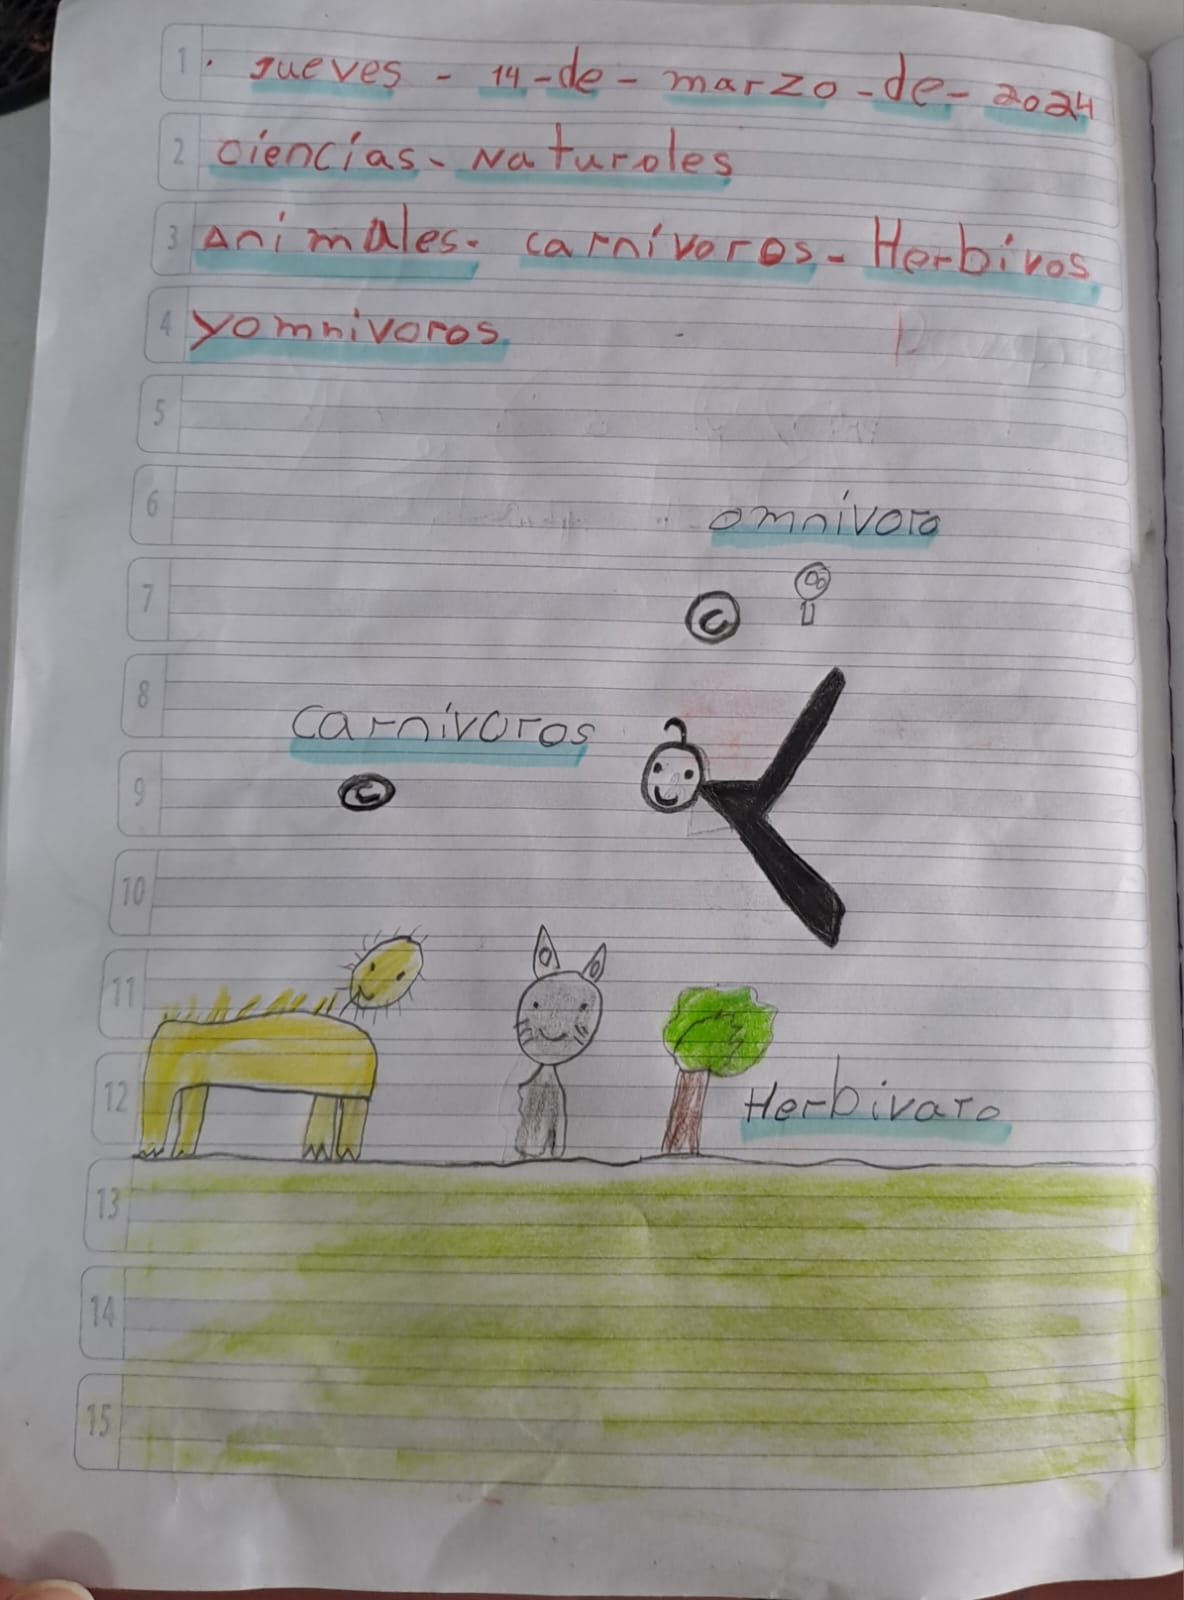 1 . Jueves - 14-de-marzo-de-2024
2 ciencías-Naturales
3 Animales. carnívoros-Herbivos
4 yomnivoros
5
6 omnívoro
7 C
8 carnívoros
9 C
10
11
12 Herbivaro
13
14
15